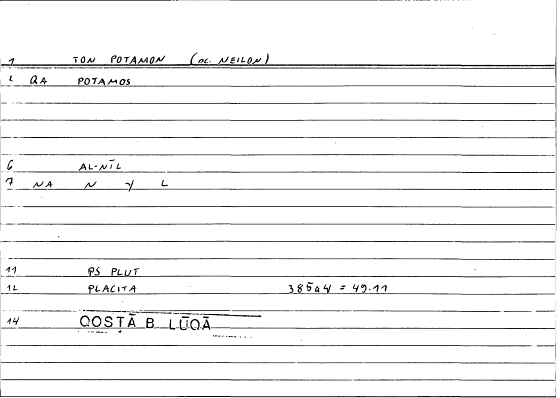 1 TON POTAMON (SC. NEILON)
2 QA POTAMOS
6 AL-NĪL
7 NA N Y L
11 PS PLUT
12 PLACITA 385a4 = 49.11
14 QOSṬĀ B. LŪQĀ